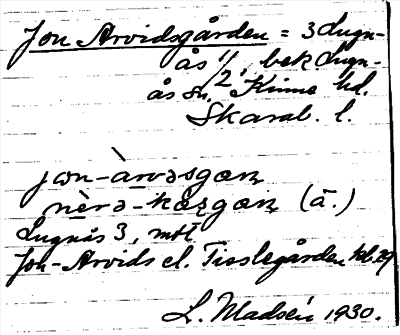 Jon Arvidsgården = 3 Lugn-
ås 1/2, bek. Lugn-
ås sn. Kinne hd.
Skarab. l.
jɷn-àrvəsgæɳ
nèrə-kærgæɳ (ä.)
Lugnås 3, mot
Jon-Arvids el. Tisslegården
L. Madsén 1930.